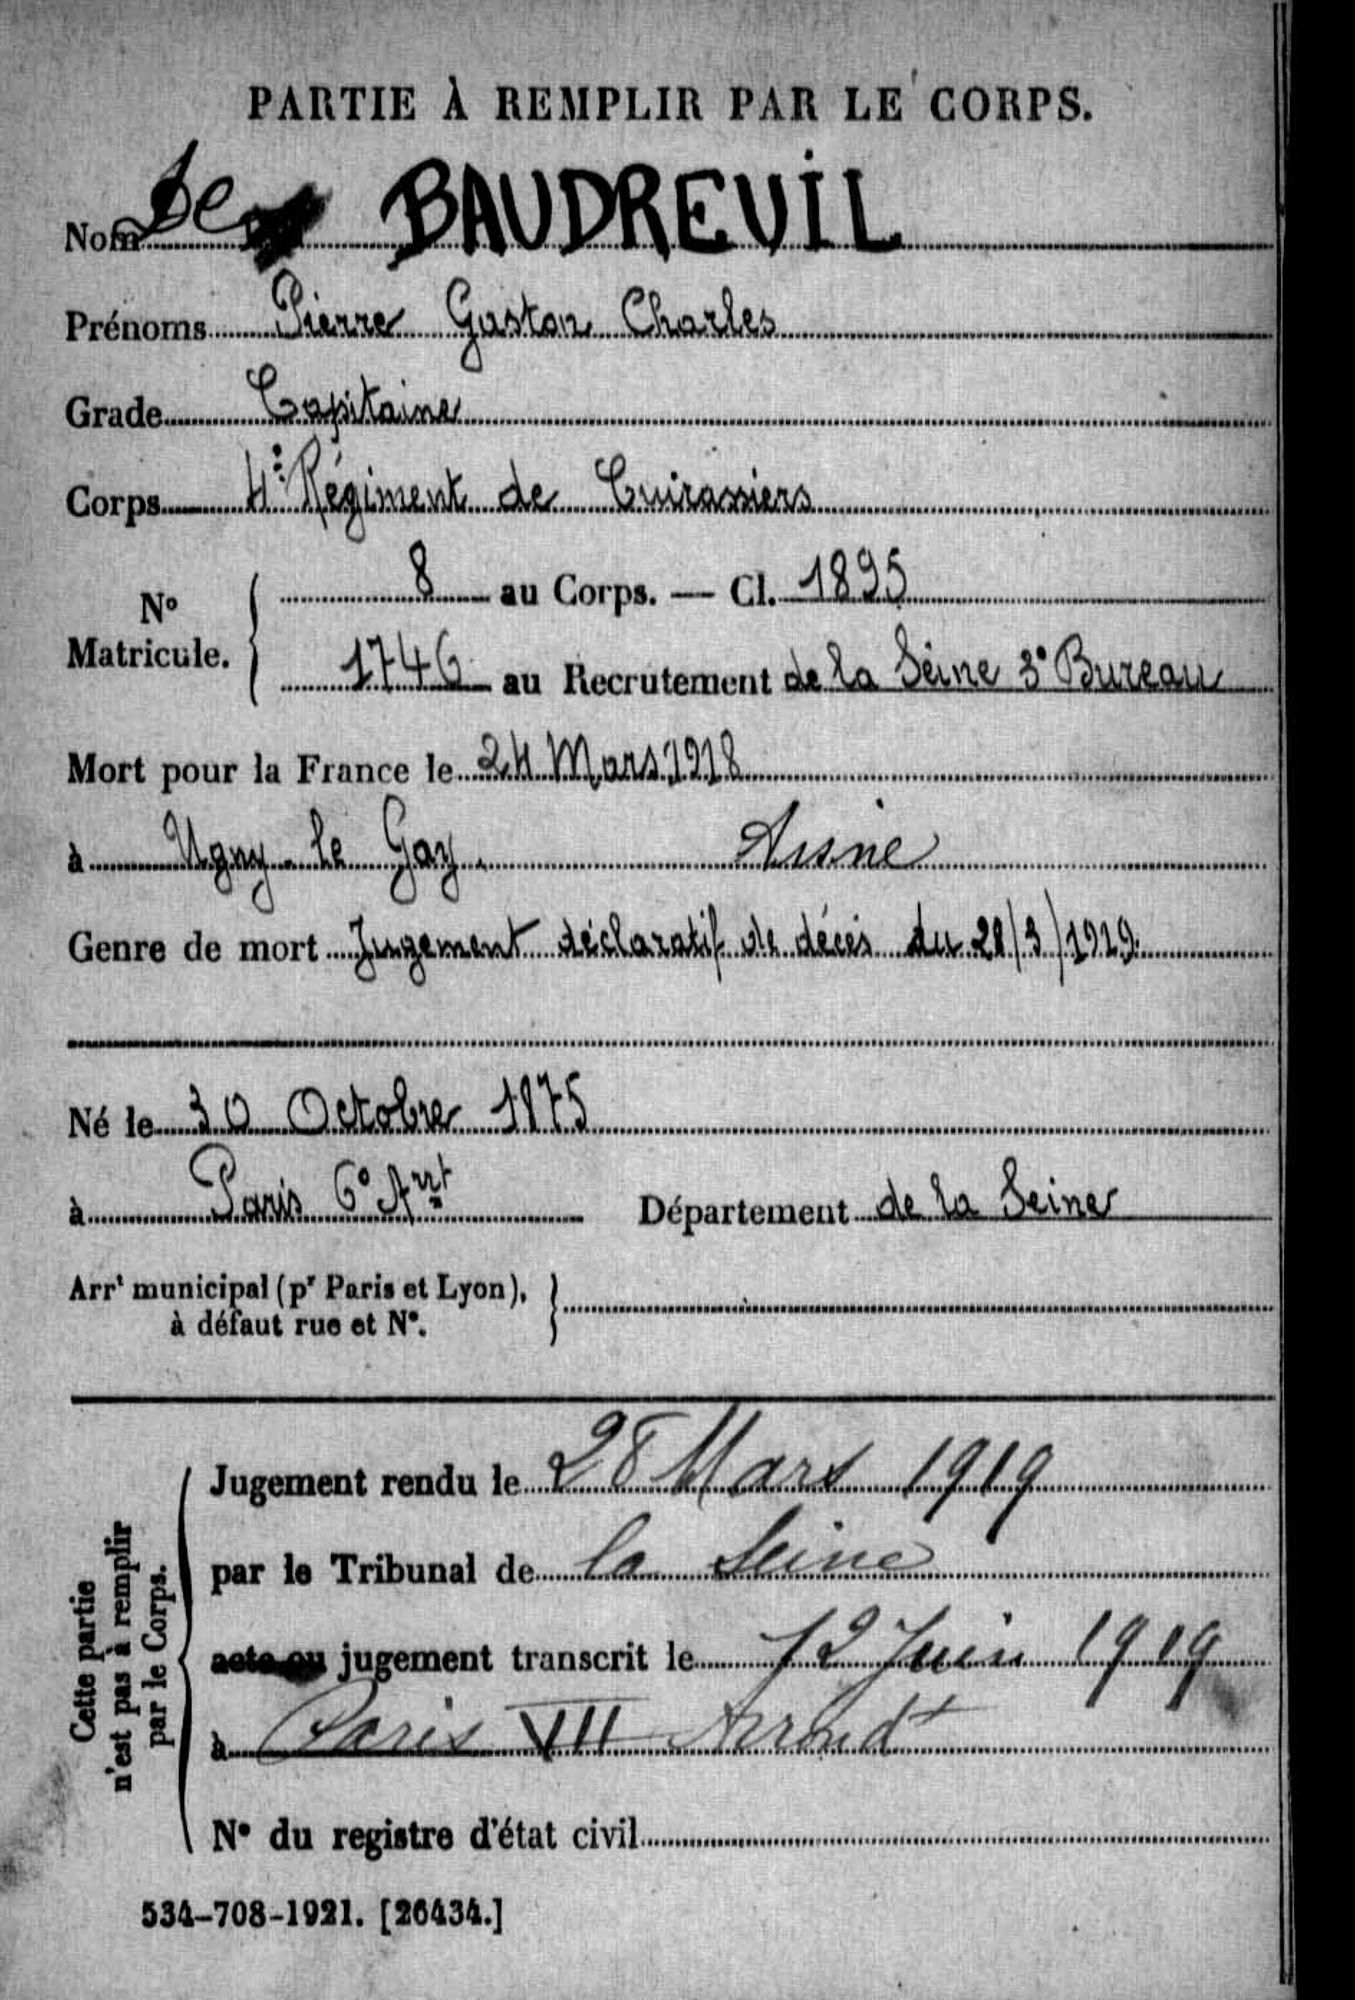 PARTIE À REMPLIR PAR LE CORPS.
Nom de BAUDREUIL
Prénoms Pierre Gaston Charles
Grade Capitaine
Corps 4e Régiment de Cuirassiers
N° Matricule. 8 au Corps. — Cl. 1895
1746 au Recrutement de la Seine 3e Bureau
Mort pour la France le 24 Mars 1918
à Ugny le Gay Aisne
Genre de mort Jugement déclaratif de décès du 28/3/1919
Né le 30 Octobre 1875
à Paris 6e Arrt Département de la Seine
Arrt municipal (pr Paris et Lyon),
à défaut rue et N°.
Cette partie
n'est pas à remplir
par le Corps.
Jugement rendu le 28 Mars 1919
par le Tribunal de la Seine
acte ou jugement transcrit le 12 Juin 1919
à Paris VII Arrondt
N° du registre d'état civil
534-708-1921. [26434.]